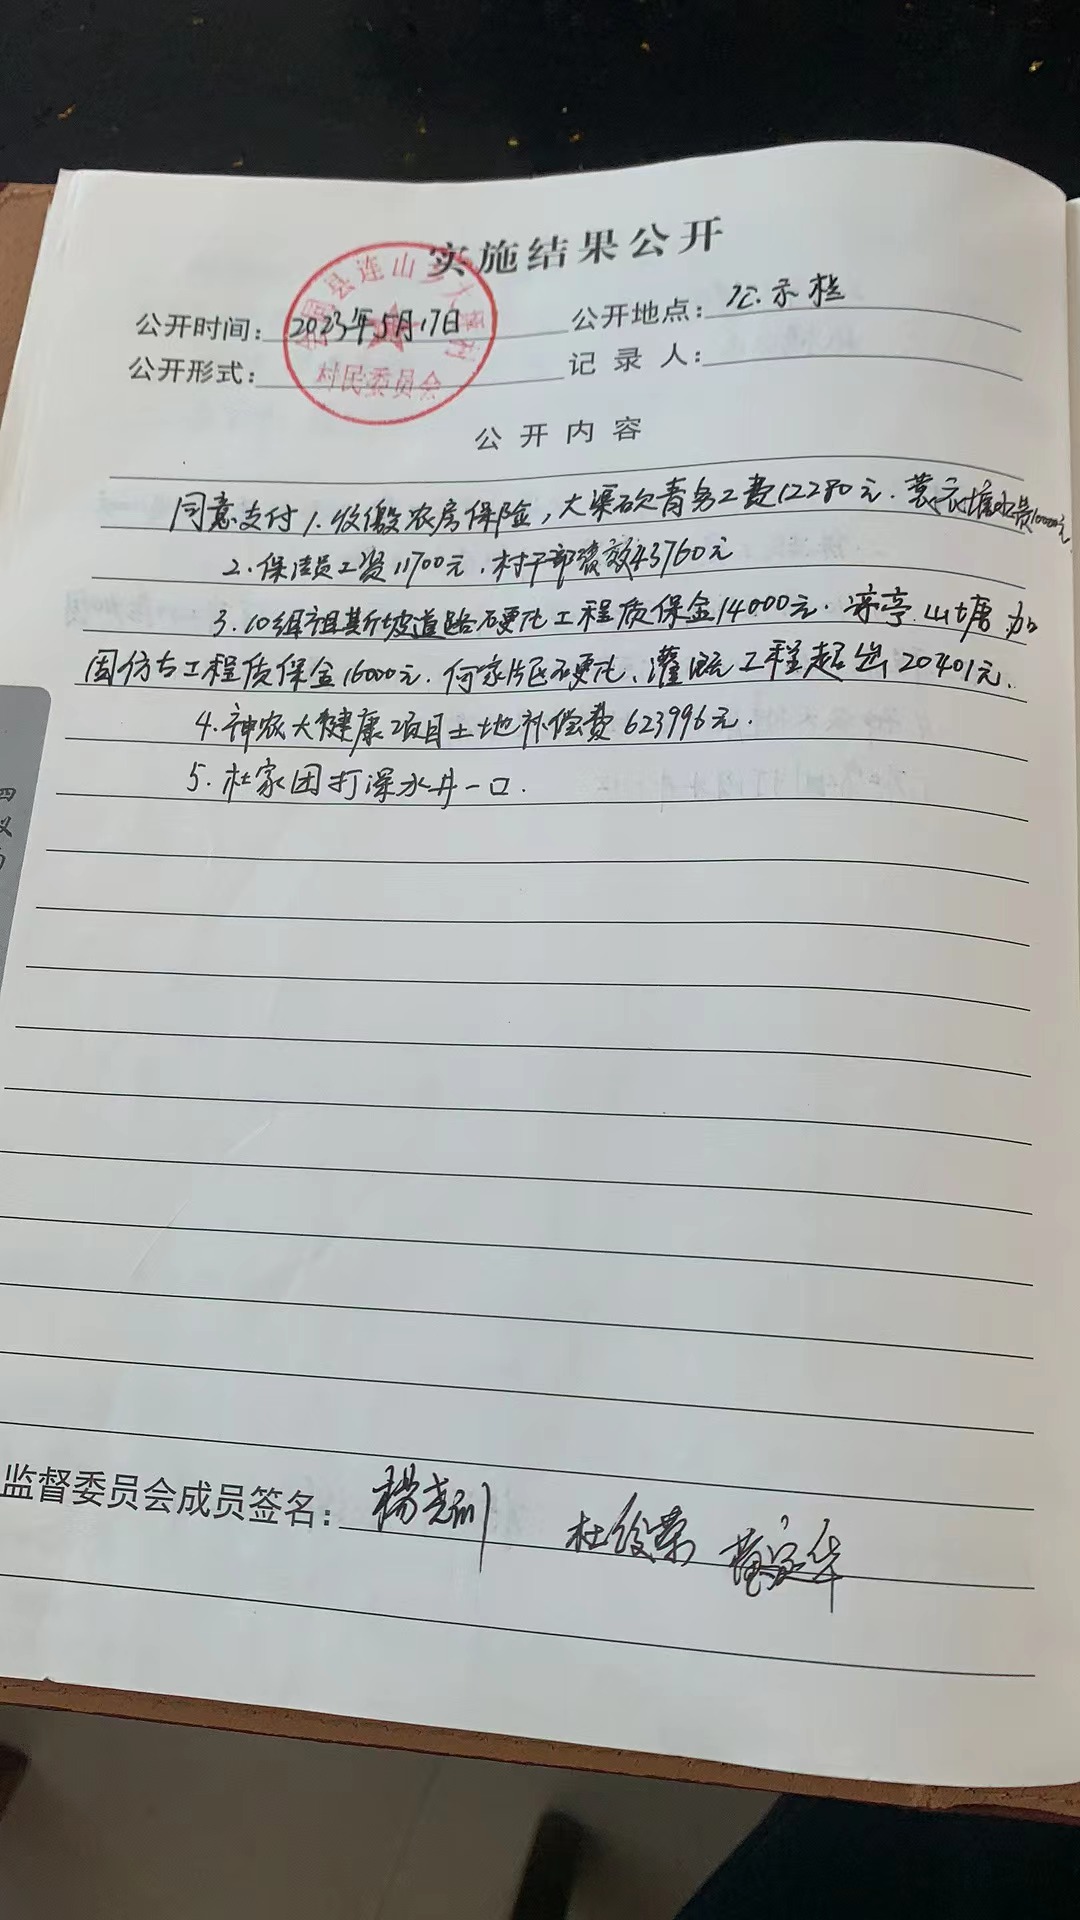 实施结果公开
公开时间：2023年5月17日 公开地点：公示栏
公开形式： 记录人：
县连山乡大 村
村民委员会
公开内容
同意支付1.收缴农房保险，大渠砍青务工费12280元. 塘水费10000元
2.保洁员工资11700元.村干部绩效43760元
3.10组祖其斤坡道路硬化工程质保金14000元.凉亭.山塘加
固仿古工程质保金16000元.何家片区硬化、灌溉工程超出20401元.
4.神农大健康项目土地补偿费623996元.
5.杜家团打深水井一口.
四
议
监督委员会成员签名： 杨 杜俊荣 黄家华